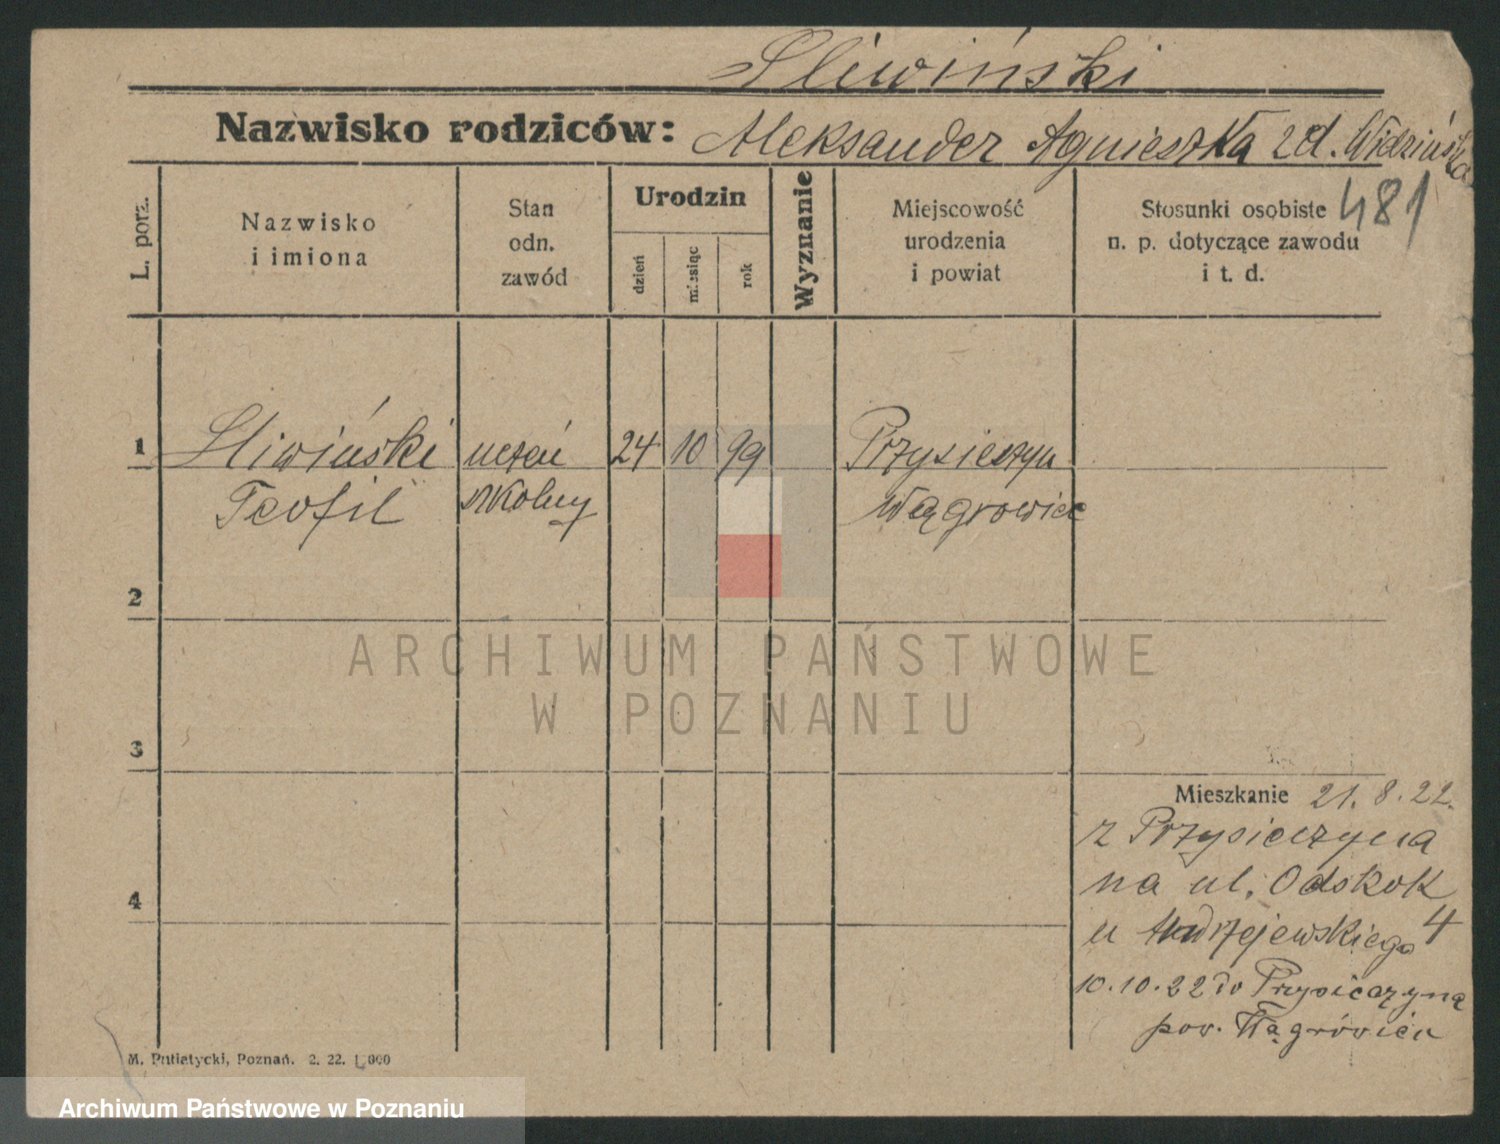 Śliwiński
Nazwisko rodziców: Aleksander Agnieszka zd. Widzińska
481
L. porz.
Nazwisko
i imiona
Stan
odn.
zawód
Urodzin
dzień
miesiąc
rok
Wyznanie
Miejscowość
urodzenia
i powiat
Stosunki osobiste
n. p. dotyczące zawodu
i t. d.
1 Śliwiński uczeń 24 10 99 Przysieczyn
Teofil szkolny Wągrowiec
2
3
Mieszkanie 21. 8. 22.
z Przysieczyna
na ul. Odskok
4
u Andrzejewskiego 4
10.10.22 do Przysieczyna
pow. Wągrówiec
M. Putiatycki, Poznań. 2. 22. 1.000
ARCHIWUM PAŃSTWOWE
W POZNANIU
Archiwum Państwowe w Poznaniu